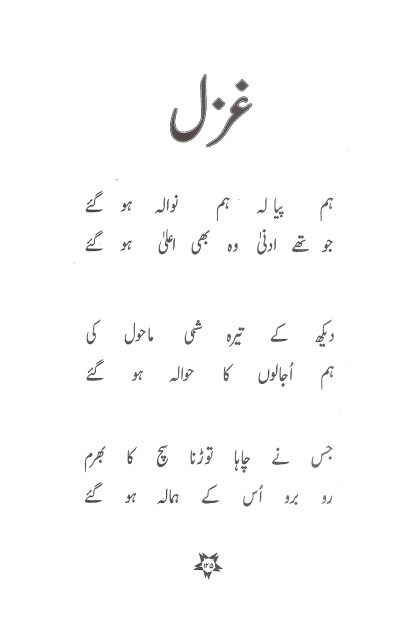 غزل
ہم پیالہ ہم نوالہ ہو گئے
جو تھے ادنیٰ وہ بھی اعلیٰ ہو گئے
دیکھ کے تیرہ شمی ماحول کی
ہم اُجالوں کا حوالہ ہو گئے
جس نے چاہا توڑنا سچ کا بھرم
رو برو اُس کے ہمالہ ہو گئے
۱۲۵